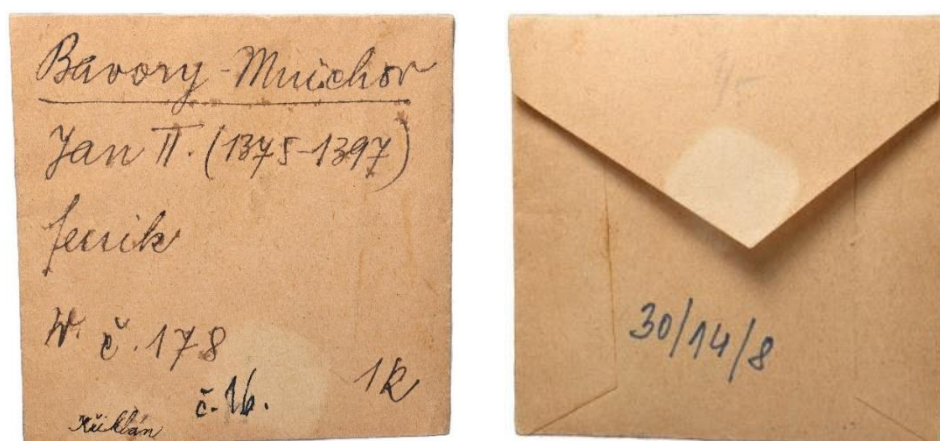 Bavory-Mnichov
Jan II. (1375-1397)
fenik
W. č. 178
č. 16.
1k
30/14/8